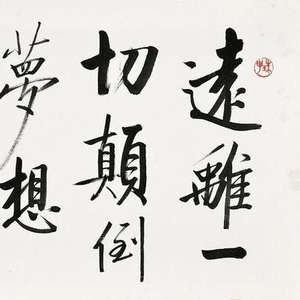 遠離一
切顛倒
夢想